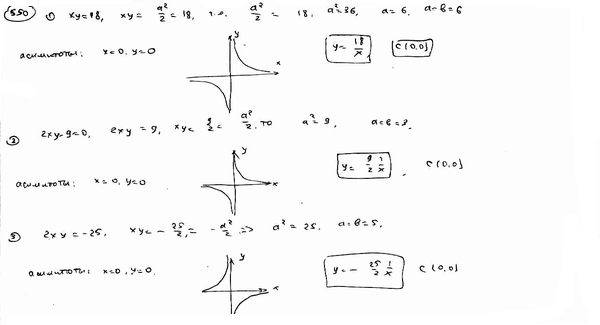 550 1) xy=18, xy = a²/2 = 18, т.е. a²/2 = 18. a²=36, a=6, a=b=6
асимптоты: x=0, y=0 y x y = 18/x C(0,0)
2) 2xy-9=0, 2xy = 9, xy = 9/2 = a²/2, то a²=9, a=b=3.
асимптоты: x=0, y=0 y x y = 9/2 1/x C(0,0)
3) 2xy=-25, xy=-25/2, = -a²/2 => a²=25. a=b=5.
асимптоты: x=0, y=0. y x y = - 25/2 1/x C(0,0)